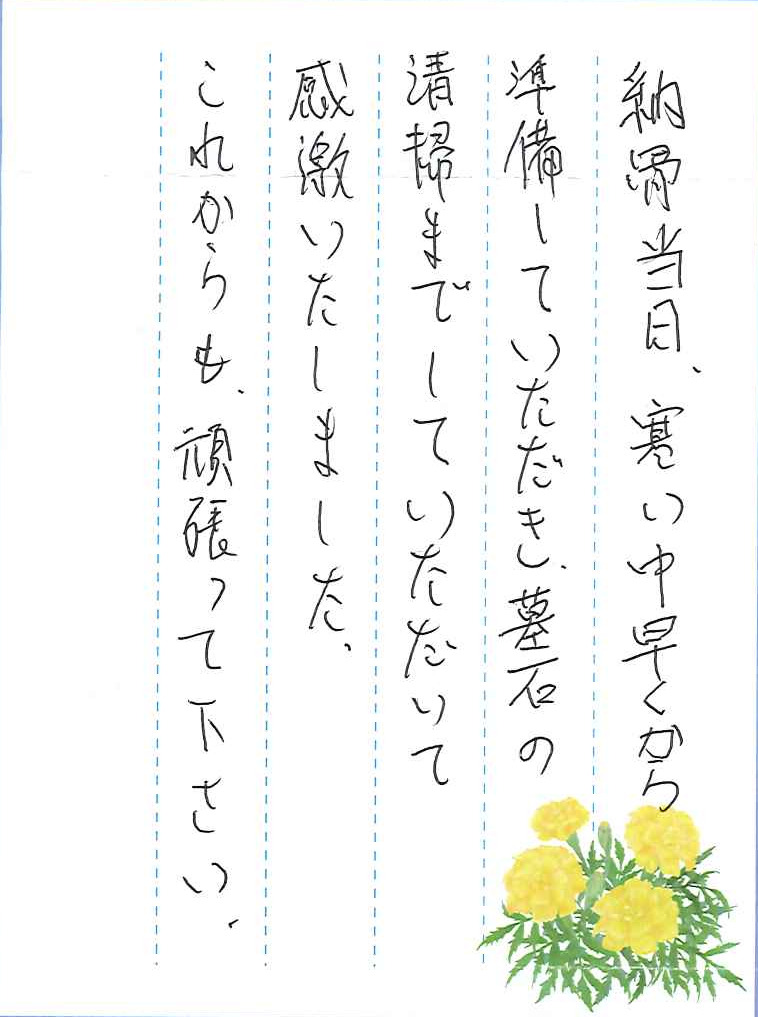 納骨当日、寒い中早くから
準備していただき、墓石の
清掃までしていただいて
感激いたしました、
これからも、頑張って下さい、